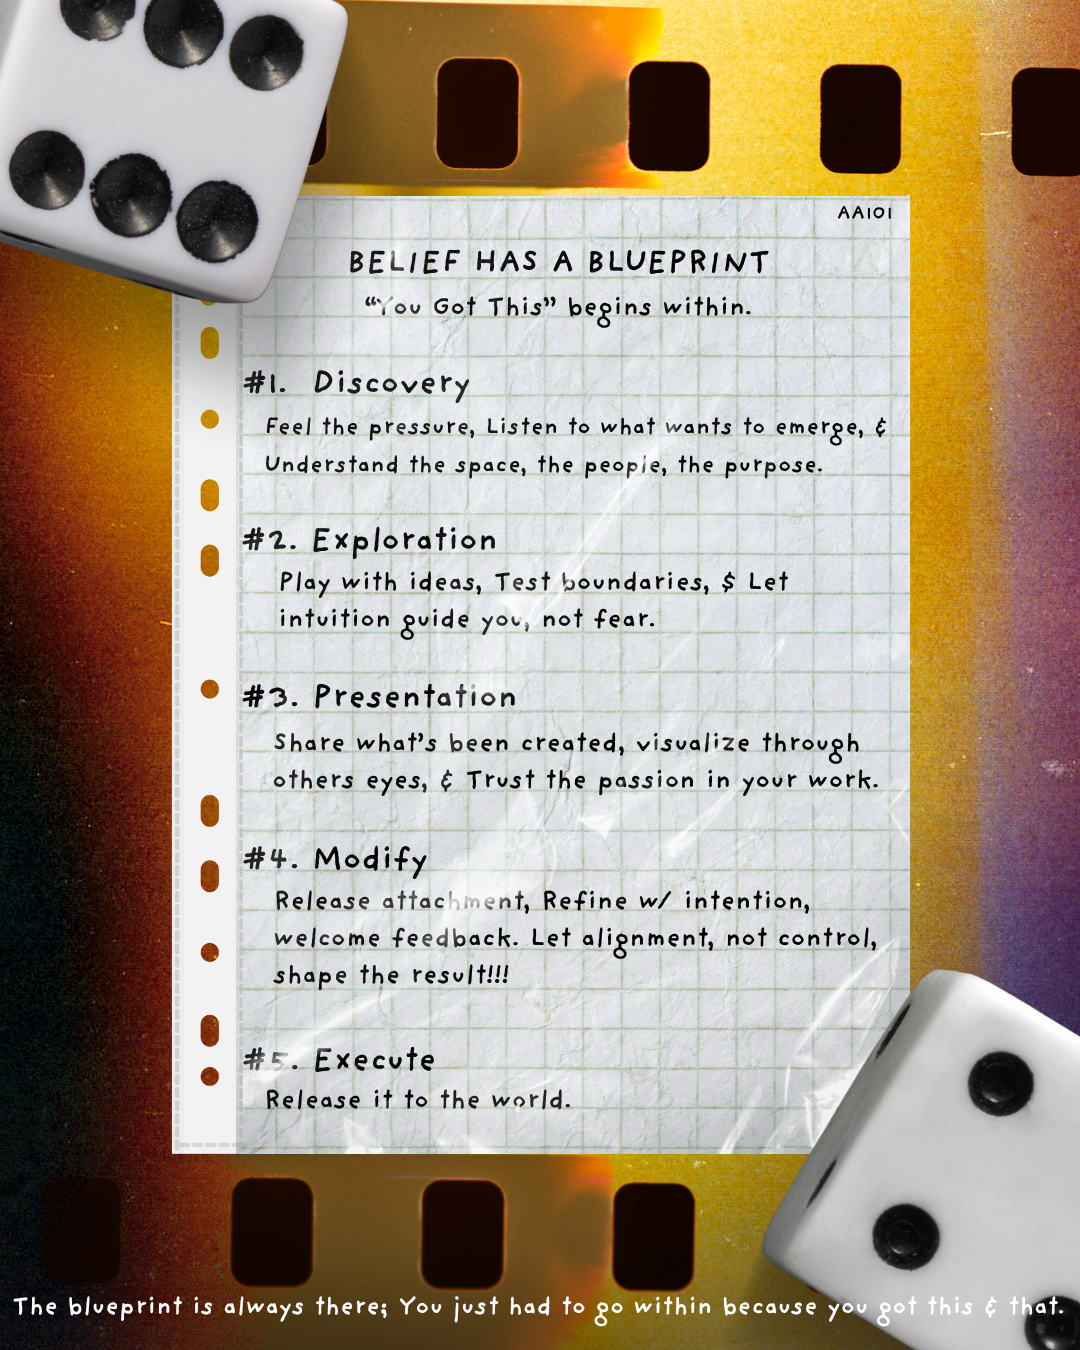 AA101
BELIEF HAS A BLUEPRINT
“You Got This” begins within.
#1. Discovery
Feel the pressure, Listen to what wants to emerge, &
Understand the space, the people, the purpose.
#2. Exploration
Play with ideas, Test boundaries, $ Let
intuition guide you, not fear.
#3. Presentation
Share what's been created, visualize through
others eyes, & Trust the passion in your work.
#4. Modify
Release attachment, Refine w/ intention,
welcome feedback. Let alignment, not control,
shape the result!!!
#5. Execute
Release it to the world.
The blueprint is always there; You just had to go within because you got this & that.